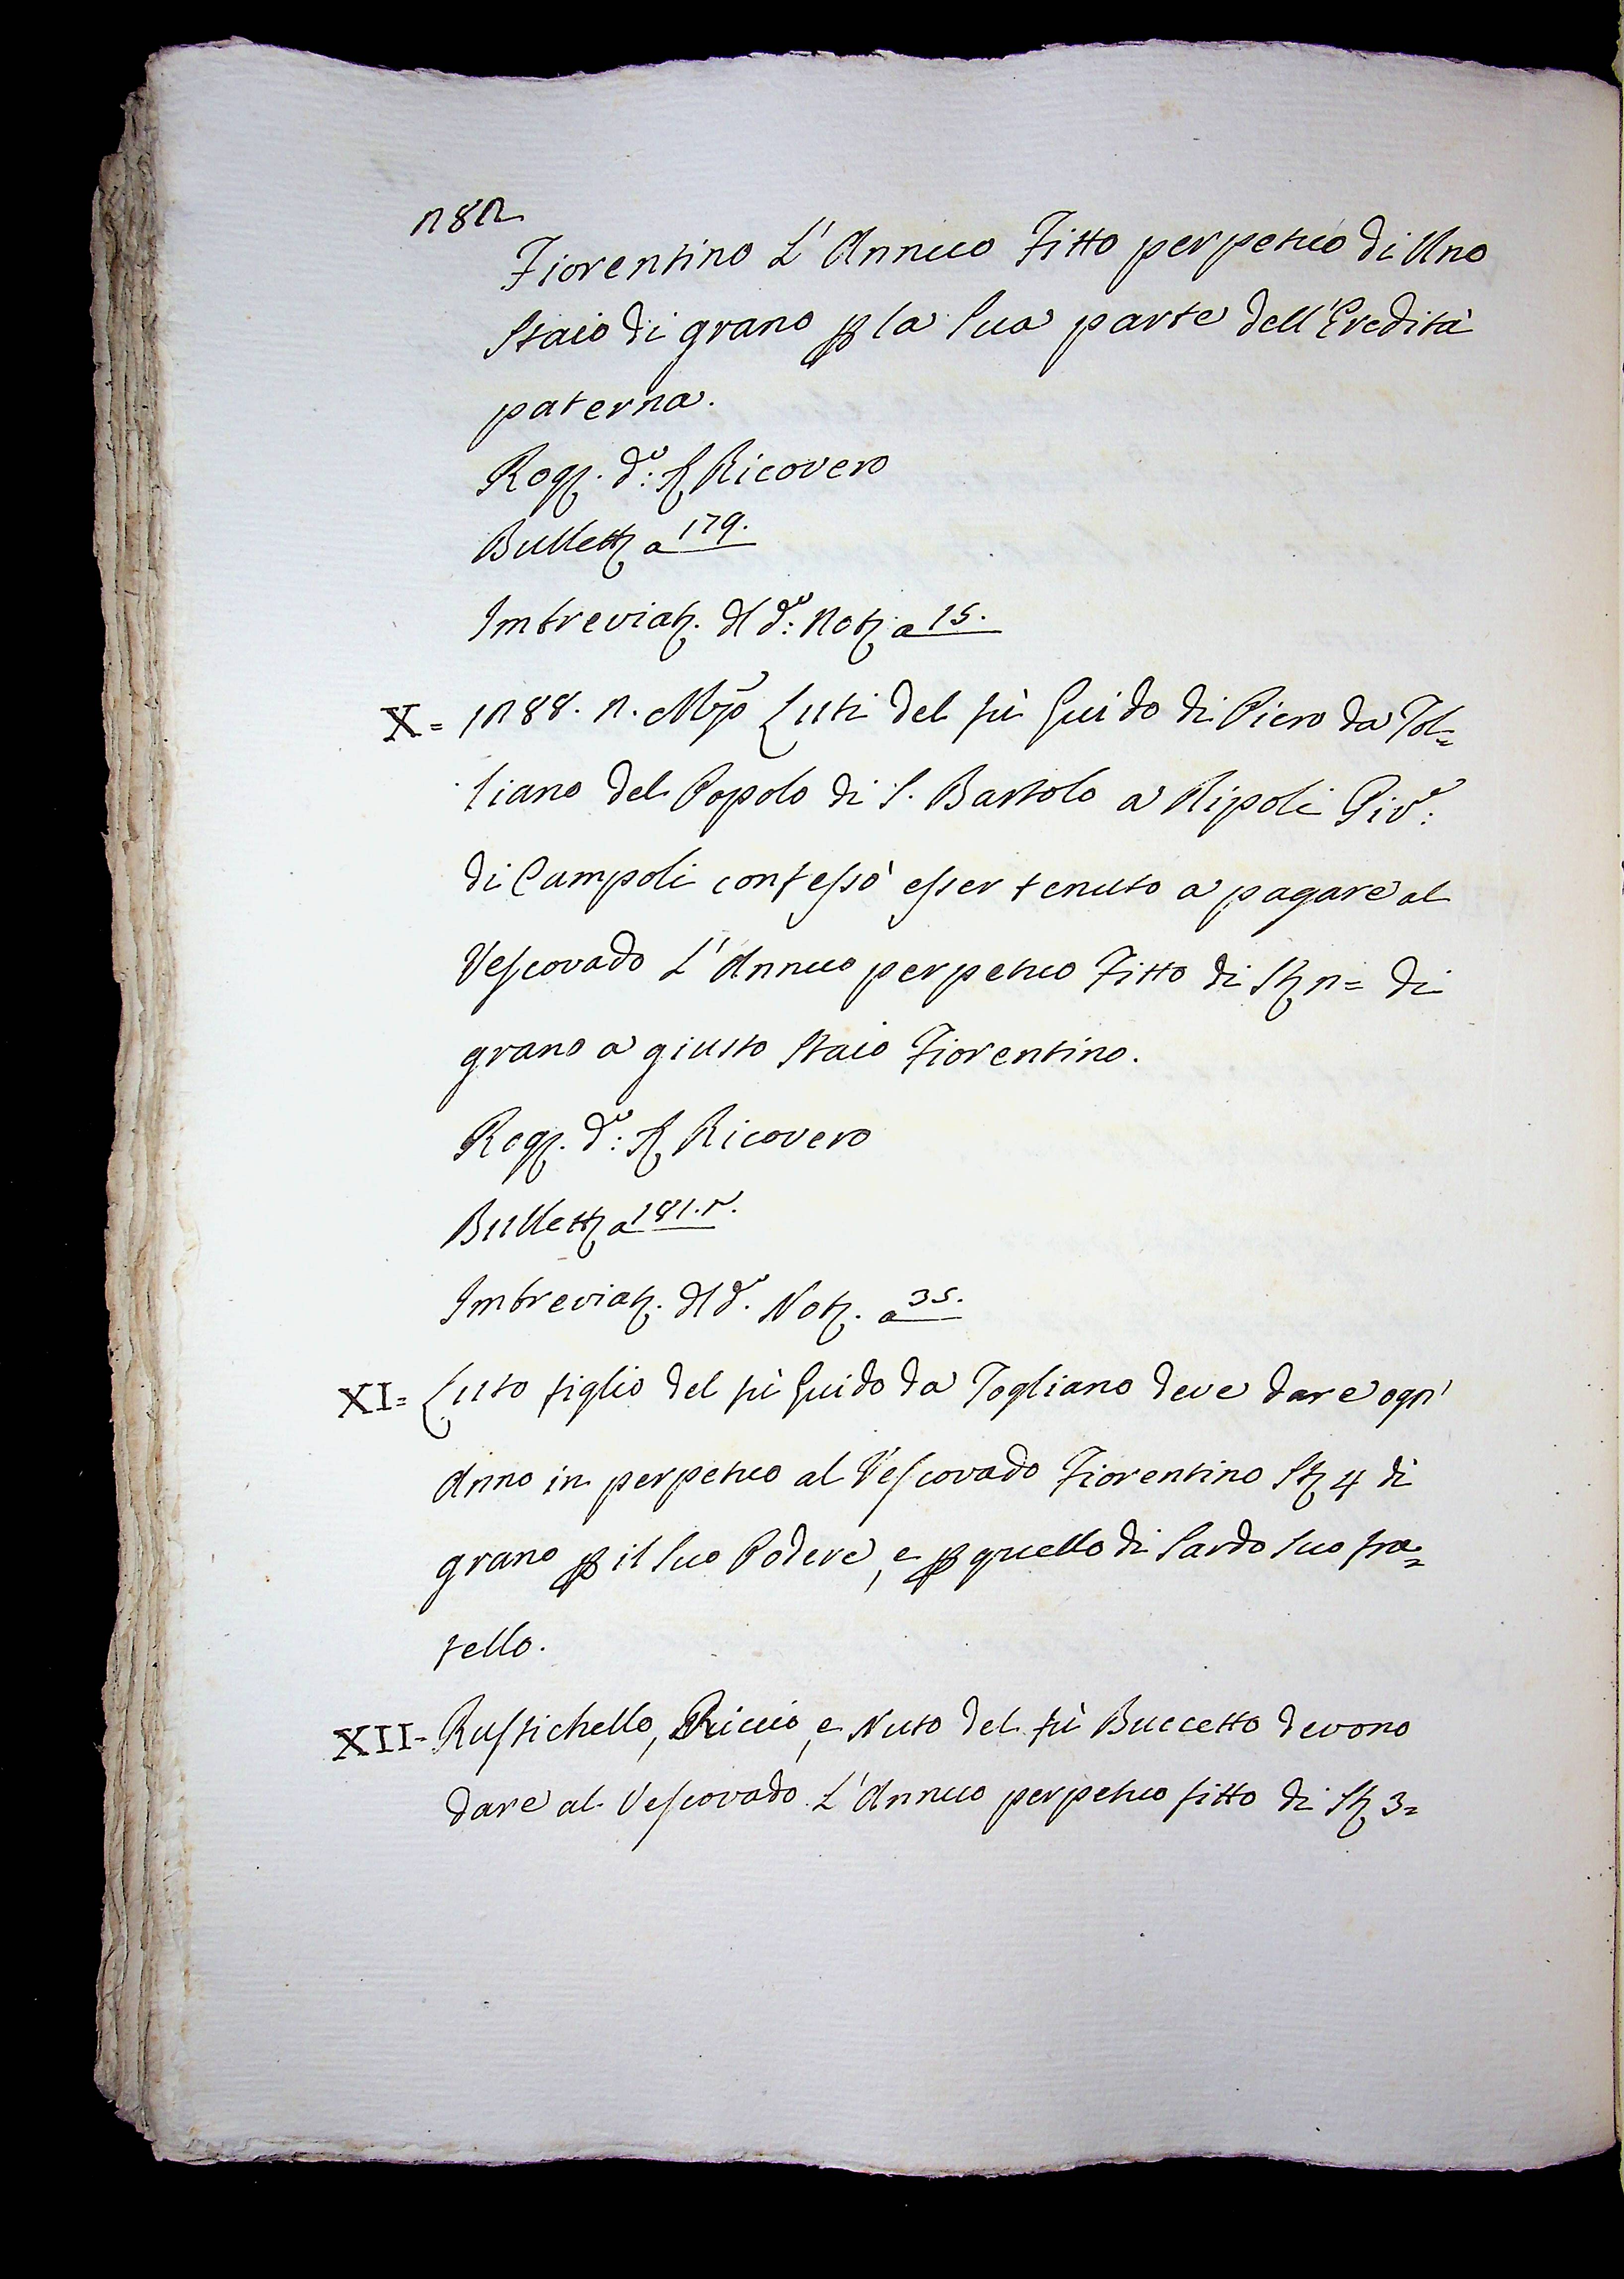 282
Fiorentino L'Annuo Fitto perpetuo di Uno
Staio di grano p la Sua parte dell'Eredità
paterna.
Rog. d.º: S Ricovero
Bullett a 179.
Imbreviaz. dl d.º: Not a 15.
X = 1288. 2. Mzo Luti del fù Guido di Piero da Tol=
liano del Popolo di S. Bartolo a Ripoli Piv.e:
di Campoli confessò esser tenuto a pagare al
Vescovado L'Annuo perpetuo Fitto di St 2= di
grano a giusto Staio Fiorentino.
Rog. d.º: S Ricovero
Bullett a 181.r.
Imbreviaz. dl d.º. Not. a 35.
XI= Luto figlio del fù Guido da Togliano deve dare ogn'
Anno in perpetuo al Vescovado Fiorentino St 4 di
grano p il Suo Podere, e p quello di Sardo Suo fra=
tello.
XII- Rustichello, Riccio, e Nuto del fù Buccetto devono
dare al Vescovado L'Annuo perpetuo fitto di St 3=